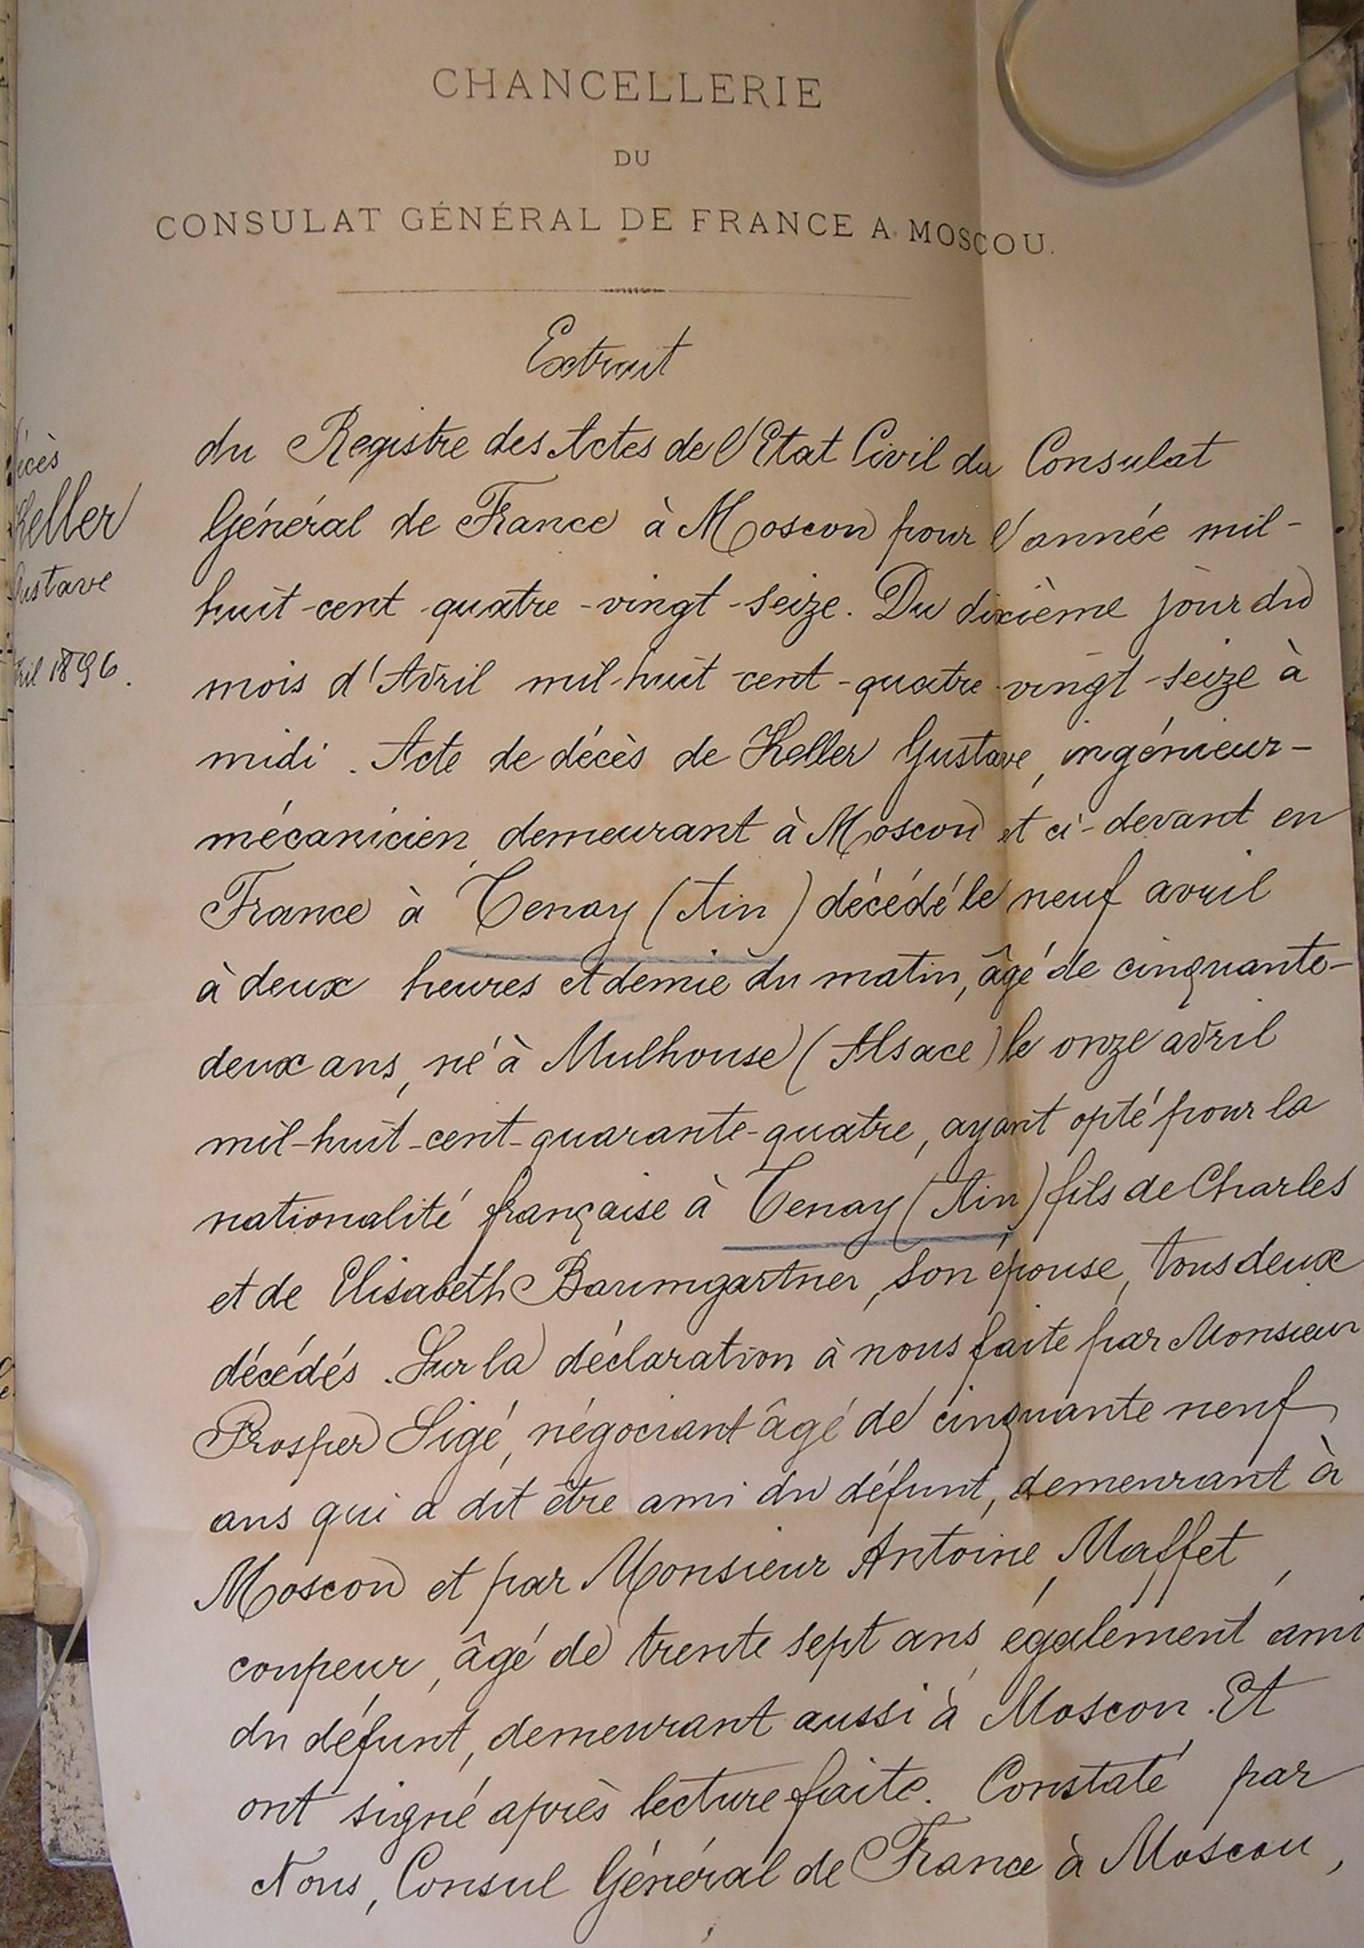 CHANCELLERIE
DU
CONSULAT GÉNÉRAL DE FRANCE A MOSCOU.
Extrait
écès
Keller
Gustave
ril 1896.
du Registre des Actes de l'Etat Civil du Consulat
Général de France à Moscou pour l'année mil-
huit-cent-quatre-vingt-seize. Du dixième jour du
mois d'Avril mil-huit-cent-quatre-vingt-seize à
midi. Acte de décès de Keller Gustave, ingénieur-
mécanicien, demeurant à Moscou et ci-devant en
France à Tenay (Ain) décédé le neuf avril
à deux heures et demie du matin, âgé de cinquante-
deux ans, né à Mulhouse (Alsace) le onze avril
mil-huit-cent-quarante-quatre, ayant opté pour la
nationalité française à Tenay (Ain) fils de Charles
et de Elisabeth Baumgartner, son épouse, tous deux
décédés. Sur la déclaration à nous faite par Monsieur
Prosper Sigé, négociant âgé de cinquante neuf
ans qui a dit être ami du défunt, demeurant à
Moscou et par Monsieur Antoine Maffet,
coupeur, âgé de trente sept ans, également ami
du défunt, demeurant aussi à Moscou. Et
ont signé après lecture faite. Constaté par
Nous, Consul Général de France à Moscou,